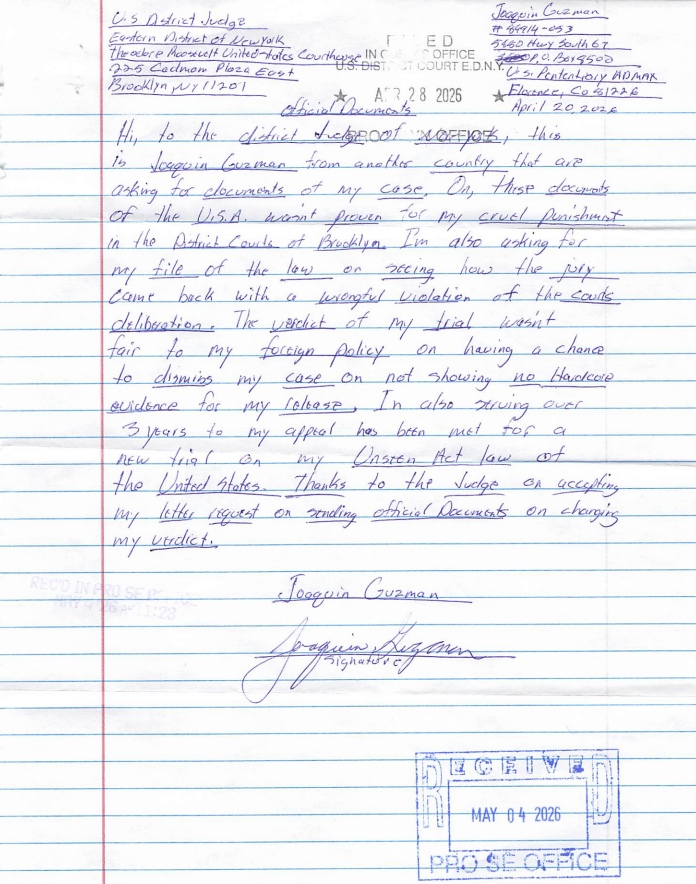 U.S District Judge
Eastern District of New York
Theodore Roosevelt United States Courthouse
225 Cadman Plaza East
Brooklyn, NY 11201
Joaquin Guzman
# 89914-053
5880 Hwy South 67
P.O. Box 8500
U.S. Penitentiary ADMAX
Florence, Co 81226
April 20, 2026
FILED
IN OFFICE
U.S. DISTRICT COURT E.D.N.Y.
★ APR 28 2026 ★
OFFICE
Official Documents
Hi, to the district Judge of, this
is Joaquin Guzman from another country that are
asking for documents of my case. On, these documents
of the U.S.A. wasn't proven for my cruel Punishment
in the District Courts of Brooklyn. I'm also asking for
my file of the law on seeing how the jury
came back with a wrongful violation of the courts
deliberation. The verdict of my trial wasn't
fair to my foreign policy on having a chance
to dismiss my case on not showing no Hardcore
evidence for my release. In also serving over
3 years to my appeal has been met for a
new trial on my Act law of
the United States. Thanks to the Judge on accepting
my letter request on sending official Documents on charging
my verdict.
Joaquin Guzman
Joaquin Guzman
Signature
REC'D IN PRO SE
MAY 4 '26 11:28
RECEIVED
MAY 04 2026
PRO SE OFFICE